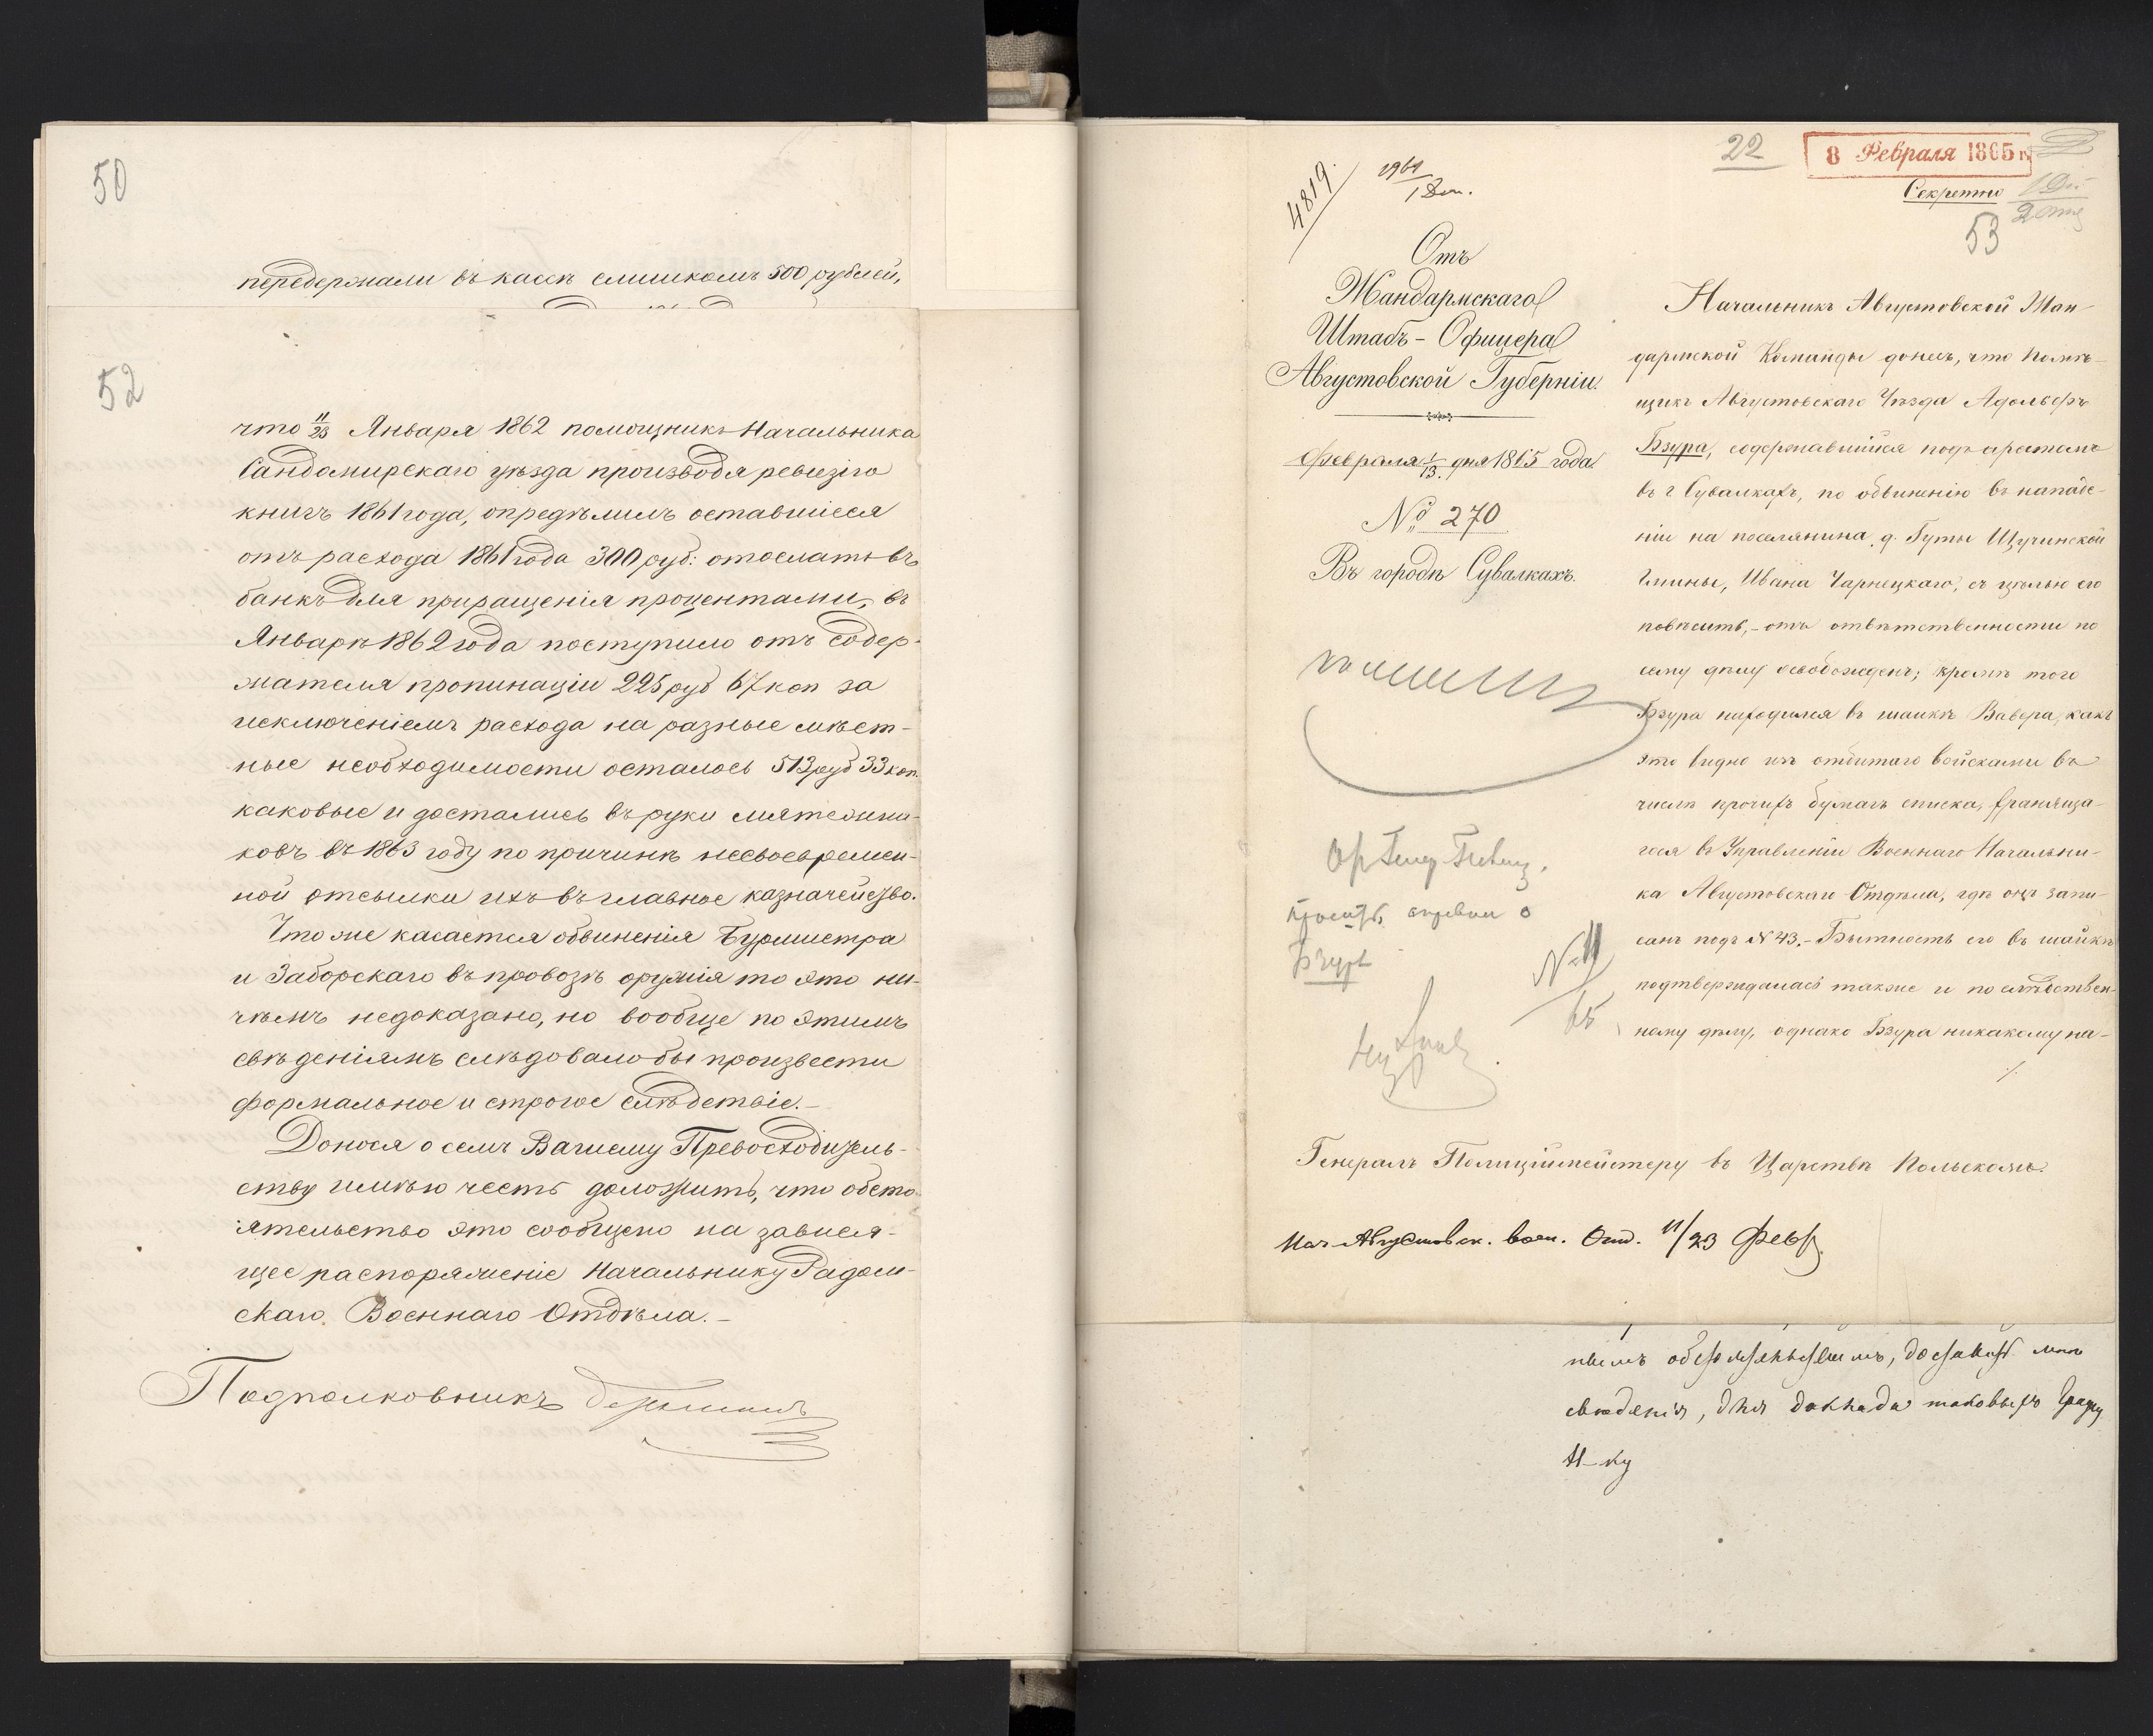 50
передержали въ кассѣ слишкомъ 500 рублей,
52
что 11/23 Января 1862 помощникъ Начальника
Сандомирскаго уѣзда производя ревизію
книгъ 1861 года, опредѣлилъ оставшіеся
отъ расхода 1861 года 300 руб: отослать въ
банкъ для приращенія процентами, въ
Январѣ 1862 года поступило отъ содер-
жателя пропинаціи 225 руб 67 коп за
исключеніемъ расхода на разные мѣст-
ные необходимости осталось 513 руб 33 коп.
каковые и достались въ руки мятежни-
ковъ въ 1863 году по причинѣ несвоевремен-
ной отсылки ихъ въ главное казначейство.
Что же касается обвиненія Бурмистра
и Заборскаго въ провозѣ оружія то это ни-
чѣмъ недоказано, но вообще по этимъ
свѣденіямъ слѣдовало бы произвести
формальное и строгое слѣдствіе.-
Донося о семъ Вашему Превосходитель-
ству имѣю честь доложить, что обсто-
ятельство это сообщено на завися-
щее распоряженіе Начальнику Радом-
скаго Военнаго Отдѣла.-
Подполковникъ
4819
22
8 Февраля 1865 г.
Секретно
53
Отъ
Жандармскаго
Штабъ-Офицера
Августовской Губерніи.
Февраля 1/13 дня 1865 года
№ 270
Въ городѣ Сувалкахъ.
Начальникъ Августовской Жан-
дармской Команды донесъ, что Помѣ-
щикъ Августовскаго Уѣзда Адольфъ
Бзура, содержавшійся подъ арестомъ
въ г Сувалкахъ, по обвиненію въ нападе-
ніи на поселянина д. Гуты Щучинской
Гмины, Ивана Чарнецкаго, съ цѣлью его
повѣсить,- отъ отвѣтственности по
сему дѣлу освобожденъ; кромѣ того
Бзура находился въ шайкѣ Вавера, какъ
это видно изъ отбитаго войсками въ
числѣ прочихъ бумагъ списка, храняща-
гося въ Управленіи Военнаго Начальни-
ка Августовскаго Отдѣла, гдѣ онъ запи-
санъ подъ № 43.- Бытность его въ шайкѣ
подтверждалась также и по слѣдствен-
ному дѣлу, однако Бзура никакому на-
о
Бзурѣ
№ 11
65
Генералъ Полиціймейстеру въ Царствѣ Польскомъ.
Нач. Августовск. воен. Отд. 11/23 Февр.
нымъ обстоятельствамъ, доставить мнѣ
свѣденія, для доклада таковыхъ Графу
Н-ку